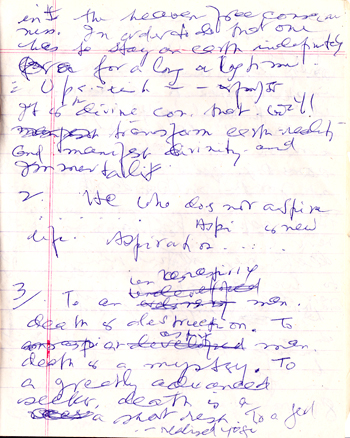 in the heaven free conscious
ness. In order to do that one
has to stay on earth indefinitely
for a long a long time.
It is divine con. that will
transform earth-reality
and manifest divinity and
Immortality.
2. He who does not aspire
Aspi is new
life. Aspiration....
3/ To an unaspiring man
death is destruction. To
an aspiring man
death is a mystery. To
a greatly advanced
seeker, death is a
a short rest. To a God
-- realised yogi